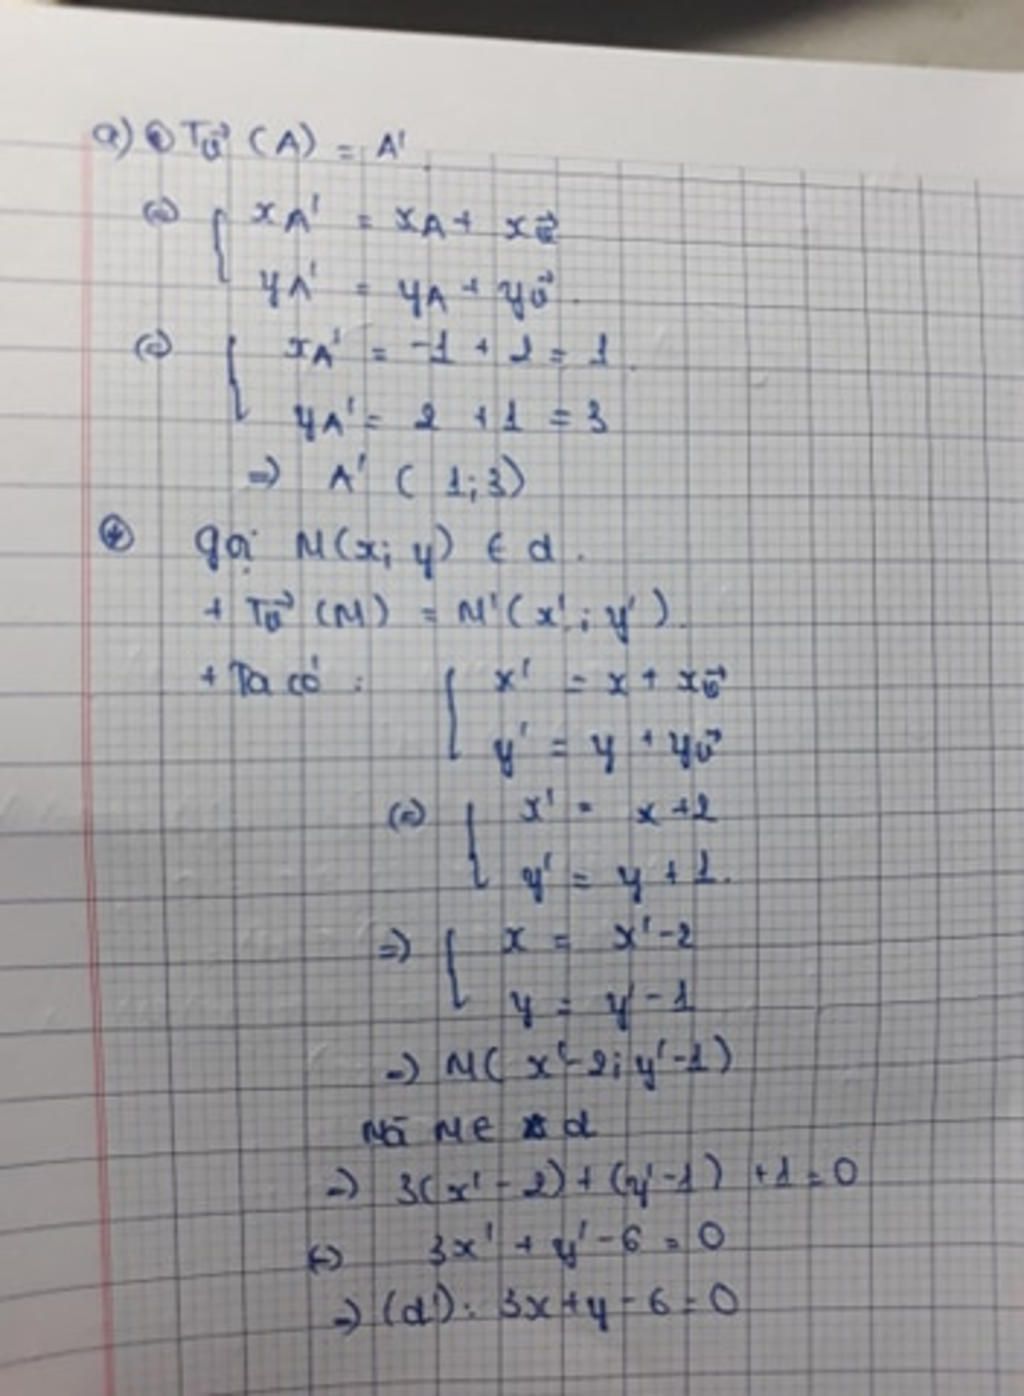 a) T_v⃗ (A) = A'
(=) { xA' = xA + x_v⃗
yA' = yA + y_v⃗
(=) { xA' = -1 + 2 = 1.
yA' = 2 + 1 = 3
=) A' ( 1; 3)
gọi M(x; y) ∈ d.
+ T_v⃗ (M) = M'(x'; y').
+ Ta có : { x' = x + x_v⃗
y' = y + y_v⃗
(=) { x' = x + 2
y' = y + 1.
=) { x = x' - 2
y = y' - 1
=) M( x' - 2; y' - 1)
Mà M ∈ d
=) 3(x' - 2) + (y' - 1) + 1 = 0
(=) 3x' + y' - 6 = 0
=) (d'): 3x + y - 6 = 0